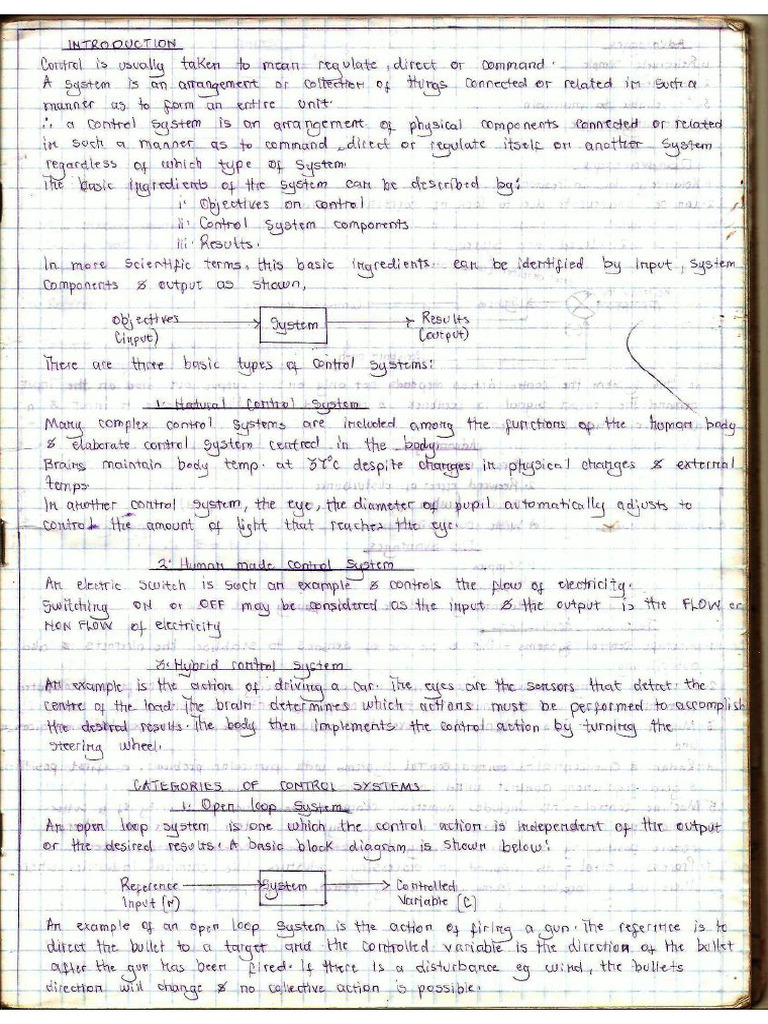 INTRODUCTION
Control is usually taken to mean regulate, direct or command.
A system is an arrangement or collection of things connected or related in such a
manner as to form an entire unit.
∴ a control system is an arrangement of physical components connected or related
in such a manner as to command, direct or regulate itself or another system
regardless of which type of system.
The basic ingredients of the system can be described by:
i. Objectives on control
ii. Control system components
iii. Results.
In more scientific terms, this basic ingredients can be identified by input, system
components & output as shown,
Objectives System Results
(input) (output)
There are three basic types of control systems:
1. Natural Control System
Many complex control systems are included among the functions of the human body
& elaborate control system centred in the body.
Brains maintain body temp. at 37°c despite changes in physical changes & external
temps.
In another control system, the eye, the diameter of pupil automatically adjusts to
control the amount of light that reaches the eye.
2. Human made control System
An electric switch is such an example & controls the flow of electricity.
Switching ON or OFF may be considered as the input & the output is the FLOW or
NON FLOW of electricity
3. Hybrid control system
An example is the action of driving a car. The eyes are the sensors that detect the
centre of the load. The brain determines which actions must be performed to accomplish
the desired results. The body then implements the control action by turning the
steering wheel.
CATEGORIES OF CONTROL SYSTEMS
1. Open loop System
An open loop system is one which the control action is independent of the output
or the desired results. A basic block diagram is shown below:
Reference System Controlled
Input (r) Variable (C)
An example of an open loop system is the action of firing a gun. The reference is to
direct the bullet to a target and the controlled variable is the direction of the bullet
after the gun has been fired. If there is a disturbance eg wind, the bullets
direction will change & no collective action is possible.